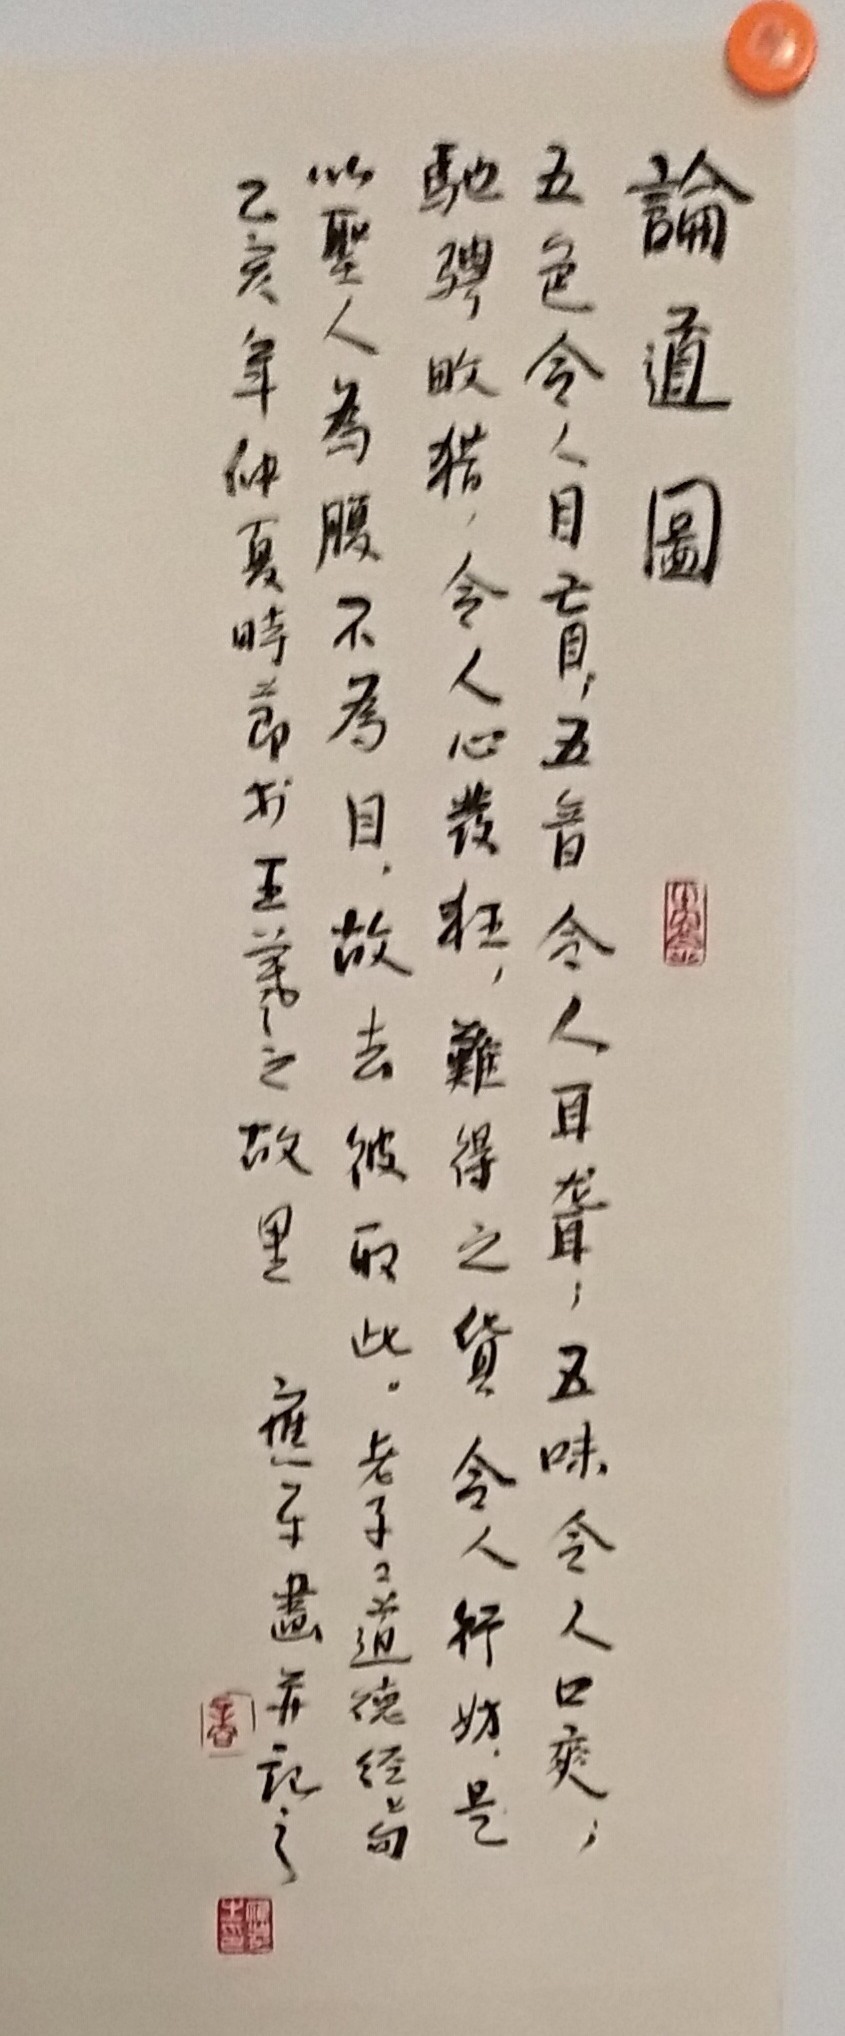 論道圖
五色令人目盲；五音令人耳聋；五味令人口爽；
馳骋畋猎，令人心發狂，難得之貨令人行妨，是
以聖人為腹不為目，故去彼取此。老子《道德经》句
乙亥年仲夏時節於王羲之故里 平畫并記之